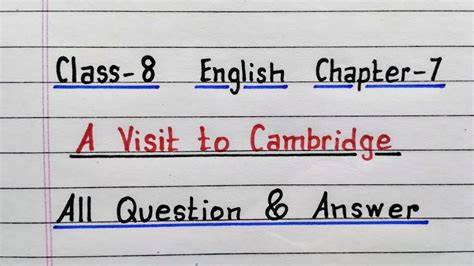 Class-8 English Chapter-7
A Visit to Cambridge
All Question & Answer